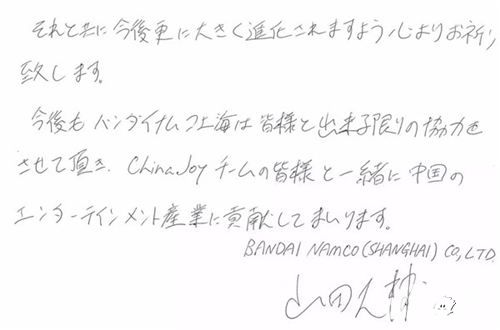 それと共に今後更に大きく進化されますよう心よりお祈り
致します。
今後もバンダイナムコ上海は皆様と出来る限りの協力を
させて頂き、ChinaJoyチームの皆様と一緒に中国の
エンターテインメント産業に貢献してまいります。
BANDAI NAMCO (SHANGHAI) CO., LTD.
山田